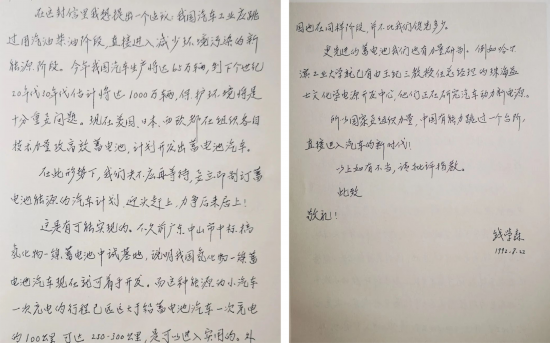 在这封信里我想提出一个建议:我国汽车工业应跳
过用汽油柴油阶段,直接进入减少环境污染的新
能源阶段。今年我国汽车生产将达65万辆,到下个世纪
20年代30年代估计将达1000万辆,保护环境将是
十分重要问题。现在美国、日本、西欧都在组织各自
技术力量攻高效蓄电池,计划开发出蓄电池汽车。
在此形势下,我们决不应再等待,要立即制订蓄
电池能源的汽车计划,迎头赶上,力争后来居上!
这是有可能实现的。不久前广东中山市中标搞
氢化物-镍蓄电池中试基地,说明我国氢化物-镍蓄
电池汽车现在就可着手开发。而这种能源为小汽车
一次充电的行程已远远大于铅蓄电池汽车一次充电
的100公里,可达250-300公里,是可以进入实用的。外
国也在同样阶段,并不比我们领先多少。
更先进的蓄电池我们也有力量研制。例如哈尔
滨工业大学就已有由王纪三教授任总经理的珠海益
士文化学电源开发中心,他们正在研究汽车动力新电源。
所以国家要组织力量,中国有能力跳过一个台阶,
直接进入汽车的新时代!
以上如有不当,请批评指教。
此致
敬礼!
钱学森
1992.8.22